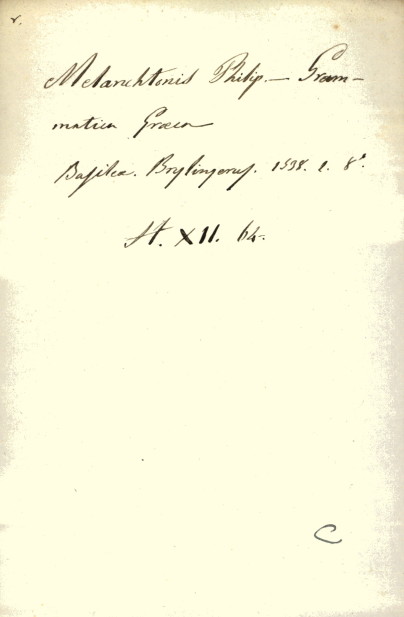 r.
Melanchtonis Philip. — Gram-
matica Græca
Basilea. Brylingerus. 1598. 1. 8°.
St. XII. 64.
C